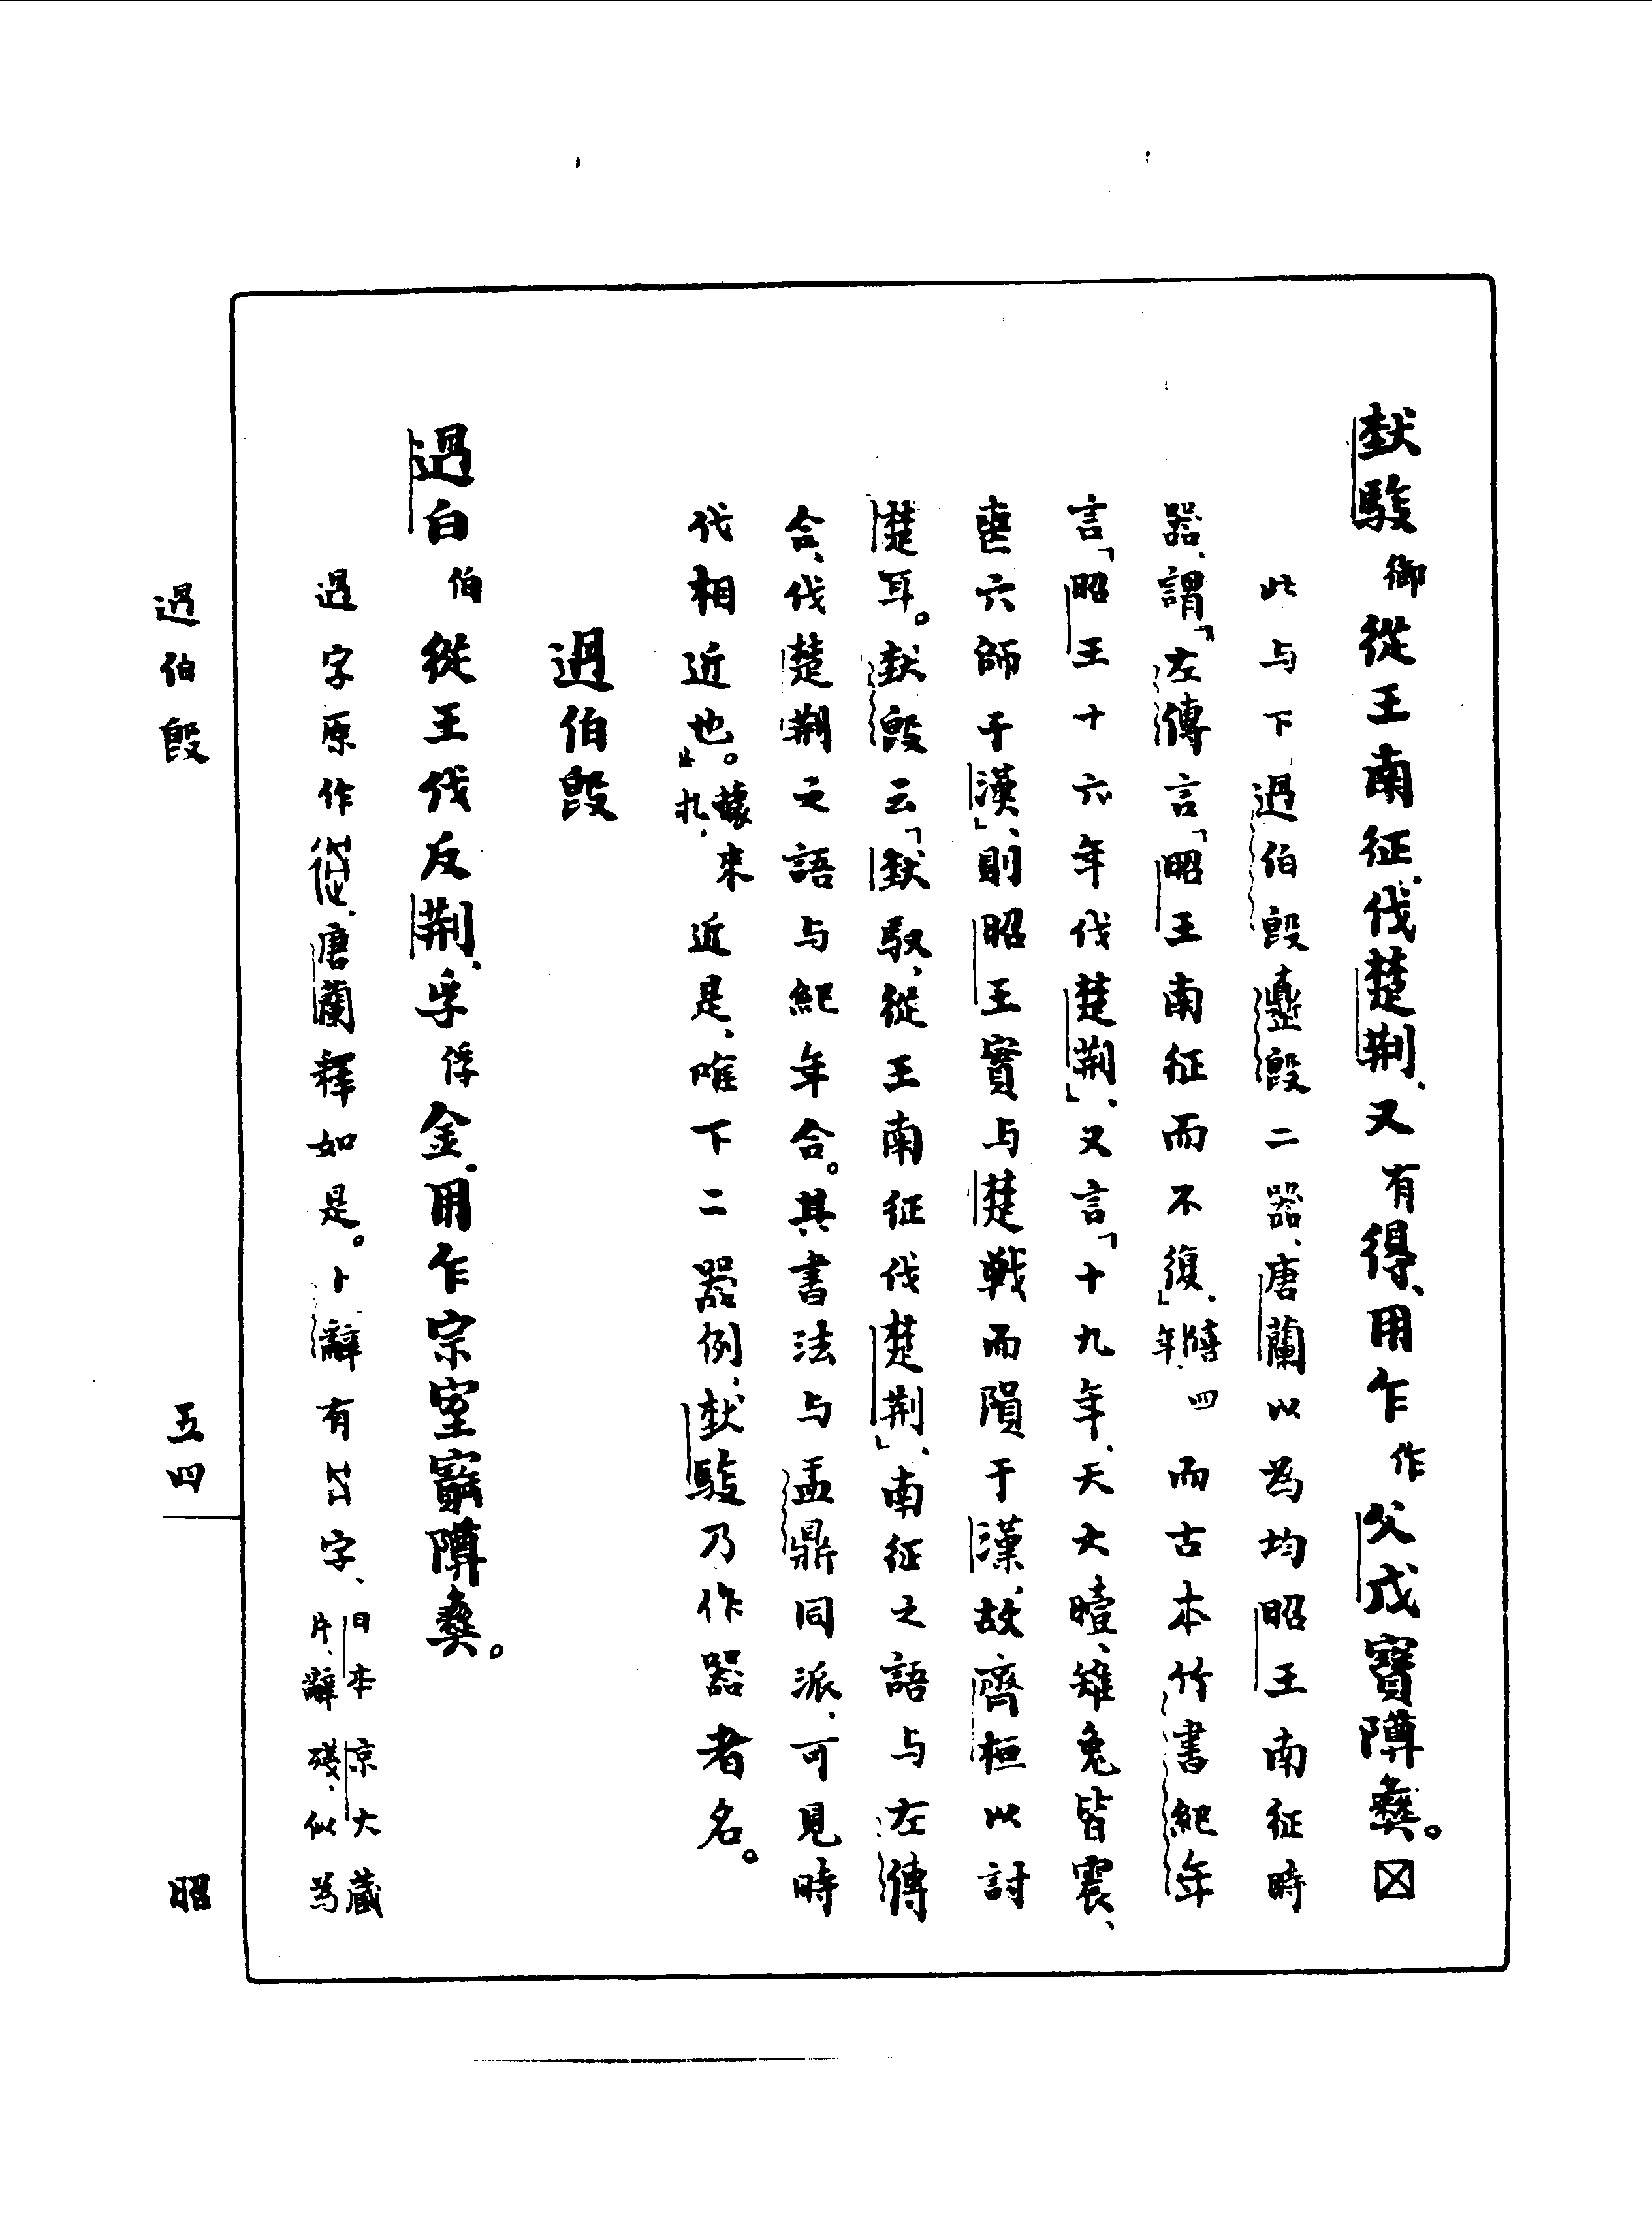 𬽁𩣑御從王南征、伐楚荆、又有得、用乍作父戊寶𨻑彝。
此与下過伯𣪘𪔅𣪘二器、唐蘭以為均昭王南征時
器、謂「左傳言「昭王南征而不復」、僖四年、而古本竹書紀年
言「昭王十六年伐楚荆」、又言「十九年、天大曀、雉兔皆震、
喪六師于漢」、則昭王實与楚戰而隕于漢、故齊桓以討
楚耳。𣪘云「馭、從王南征伐楚荆」、南征之語与左傳
合、伐楚荆之語与紀年合。其書法与盂鼎同派、可見時
代相近也。」據來札、近是、唯下二器例、乃作器者名。
過伯𣪘
過白伯從王伐反荆、孚俘金、用乍宗室寶𨻑彝。
過字原作、唐蘭釋如是。卜辭有字、日本京大藏片、辭殘、似為
過伯𣪘
五四
昭